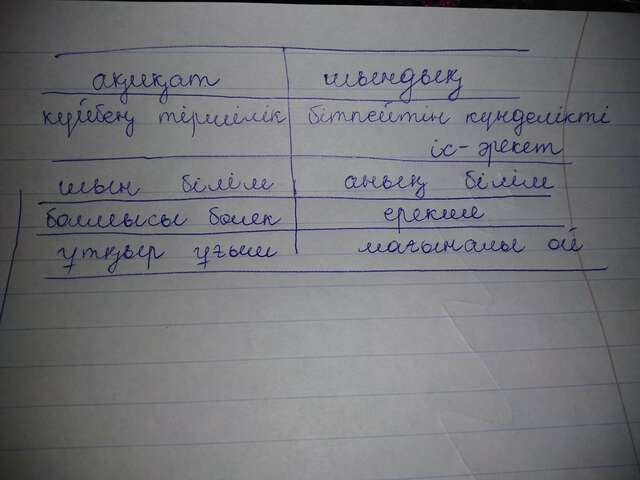 ақиқат шындық
күйбең тіршілік бітпейтін күнделікті
іс-әрекет
шын білім анық білім
болмысы бөлек ерекше
ұтқыр ұғым мағыналы ой